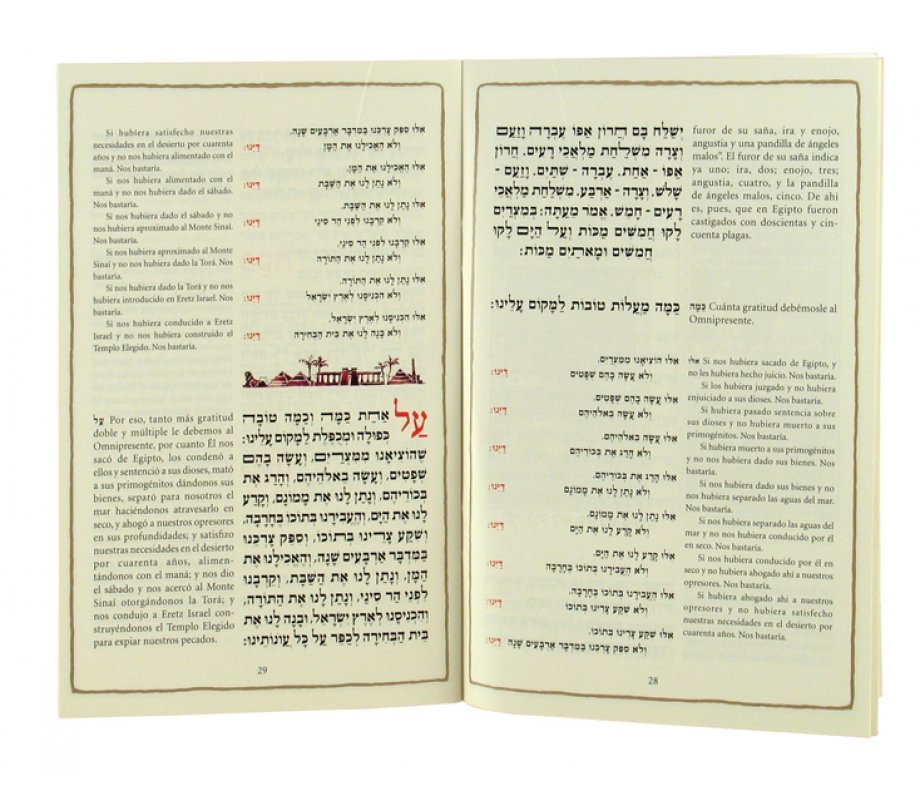 יְשַׁלַּח בָּם חֲרוֹן אַפּוֹ עֶבְרָה וָזַעַם
וְצָרָה מִשְׁלַחַת מַלְאֲכֵי רָעִים. חֲרוֹן
אַפּוֹ - אַחַת. עֶבְרָה - שְׁתַּיִם. וָזַעַם -
שָׁלֹשׁ. וְצָרָה - אַרְבַּע. מִשְׁלַחַת מַלְאֲכֵי
רָעִים - חָמֵשׁ. אֱמֹר מֵעַתָּה: בְּמִצְרַיִם
לָקוּ חֲמִשִּׁים מַכּוֹת וְעַל הַיָּם לָקוּ
חֲמִשִּׁים וּמָאתַיִם מַכּוֹת:
furor de su saña, ira y enojo,
angustia y una pandilla de ángeles
malos". El furor de su saña indica
ya uno; ira, dos; enojo, tres;
angustia, cuatro, y la pandilla
de ángeles malos, cinco. De ahí
es, pues, que en Egipto fueron
castigados con doscientas y cin-
cuenta plagas.
כַּמָּה מַעֲלוֹת טוֹבוֹת לַמָּקוֹם עָלֵינוּ:
כַּמָּה Cuánta gratitud debémosle al
Omnipresente.
אִלּוּ הוֹצִיאָנוּ מִמִּצְרַיִם.
וְלֹא עָשָׂה בָהֶם שְׁפָטִים דַּיֵּנוּ:
אִלּוּ עָשָׂה בָהֶם שְׁפָטִים.
וְלֹא עָשָׂה בֵאלֹהֵיהֶם דַּיֵּנוּ:
אִלּוּ עָשָׂה בֵאלֹהֵיהֶם.
וְלֹא הָרַג אֶת בְּכוֹרֵיהֶם דַּיֵּנוּ:
אִלּוּ הָרַג אֶת בְּכוֹרֵיהֶם.
וְלֹא נָתַן לָנוּ אֶת מָמוֹנָם דַּיֵּנוּ:
אִלּוּ נָתַן לָנוּ אֶת מָמוֹנָם.
וְלֹא קָרַע לָנוּ אֶת הַיָּם דַּיֵּנוּ:
אִלּוּ קָרַע לָנוּ אֶת הַיָּם.
וְלֹא הֶעֱבִירָנוּ בְתוֹכוֹ בֶּחָרָבָה דַּיֵּנוּ:
אִלּוּ הֶעֱבִירָנוּ בְתוֹכוֹ בֶּחָרָבָה.
וְלֹא שִׁקַּע צָרֵינוּ בְתוֹכוֹ דַּיֵּנוּ:
אִלּוּ שִׁקַּע צָרֵינוּ בְתוֹכוֹ.
וְלֹא סִפֵּק צָרְכֵּנוּ בַּמִּדְבָּר אַרְבָּעִים שָׁנָה דַּיֵּנוּ:
אִלּוּ Si nos hubiera sacado de Egipto, y
no les hubiera hecho juicio. Nos bastaría.
Si los hubiera juzgado y no hubiera
enjuiciado a sus dioses. Nos bastaría.
Si hubiera pasado sentencia sobre
sus dioses y no hubiera muerto a sus
primogénitos. Nos bastaría.
Si hubiera muerto a sus primogénitos
y no nos hubiera dado sus bienes. Nos
bastaría.
Si nos hubiera dado sus bienes y no
nos hubiera separado las aguas del mar.
Nos bastaría.
Si nos hubiera separado las aguas del
mar y no nos hubiera conducido por él
en seco. Nos bastaría.
Si nos hubiera conducido por él en
seco y no hubiera ahogado ahí a nuestros
opresores. Nos bastaría.
Si hubiera ahogado ahí a nuestros
opresores y no hubiera satisfecho
nuestras necesidades en el desierto por
cuarenta años. Nos bastaría.
28
אִלּוּ סִפֵּק צָרְכֵּנוּ בַּמִּדְבָּר אַרְבָּעִים שָׁנָה.
וְלֹא הֶאֱכִילָנוּ אֶת הַמָּן דַּיֵּנוּ:
אִלּוּ הֶאֱכִילָנוּ אֶת הַמָּן.
וְלֹא נָתַן לָנוּ אֶת הַשַּׁבָּת דַּיֵּנוּ:
אִלּוּ נָתַן לָנוּ אֶת הַשַּׁבָּת.
וְלֹא קֵרְבָנוּ לִפְנֵי הַר סִינַי דַּיֵּנוּ:
אִלּוּ קֵרְבָנוּ לִפְנֵי הַר סִינַי.
וְלֹא נָתַן לָנוּ אֶת הַתּוֹרָה דַּיֵּנוּ:
אִלּוּ נָתַן לָנוּ אֶת הַתּוֹרָה.
וְלֹא הִכְנִיסָנוּ לְאֶרֶץ יִשְׂרָאֵל דַּיֵּנוּ:
אִלּוּ הִכְנִיסָנוּ לְאֶרֶץ יִשְׂרָאֵל.
וְלֹא בָנָה לָנוּ אֶת בֵּית הַבְּחִירָה דַּיֵּנוּ:
Si hubiera satisfecho nuestras
necesidades en el desierto por cuarenta
años y no nos hubiera alimentado con el
maná. Nos bastaría.
Si nos hubiera alimentado con el
maná y no nos hubiera dado el sábado.
Nos bastaría.
Si nos hubiera dado el sábado y no
nos hubiera aproximado al Monte Sinaí.
Nos bastaría.
Si nos hubiera aproximado al Monte
Sinaí y no nos hubiera dado la Torá. Nos
bastaría.
Si nos hubiera dado la Torá y no nos
hubiera introducido en Eretz Israel. Nos
bastaría.
Si nos hubiera conducido a Eretz
Israel y no nos hubiera construido el
Templo Elegido. Nos bastaría.
עַל אַחַת כַּמָּה וְכַמָּה טוֹבָה
כְפוּלָה וּמְכֻפֶּלֶת לַמָּקוֹם עָלֵינוּ:
שֶׁהוֹצִיאָנוּ מִמִּצְרַיִם, וְעָשָׂה בָהֶם
שְׁפָטִים, וְעָשָׂה בֵאלֹהֵיהֶם, וְהָרַג אֶת
בְּכוֹרֵיהֶם, וְנָתַן לָנוּ אֶת מָמוֹנָם, וְקָרַע
לָנוּ אֶת הַיָּם, וְהֶעֱבִירָנוּ בְתוֹכוֹ בֶּחָרָבָה,
וְשִׁקַּע צָרֵינוּ בְתוֹכוֹ, וְסִפֵּק צָרְכֵּנוּ
בַּמִּדְבָּר אַרְבָּעִים שָׁנָה, וְהֶאֱכִילָנוּ אֶת
הַמָּן, וְנָתַן לָנוּ אֶת הַשַּׁבָּת, וְקֵרְבָנוּ
לִפְנֵי הַר סִינַי, וְנָתַן לָנוּ אֶת הַתּוֹרָה,
וְהִכְנִיסָנוּ לְאֶרֶץ יִשְׂרָאֵל, וּבָנָה לָנוּ אֶת
בֵּית הַבְּחִירָה לְכַפֵּר עַל כָּל עֲוֹנוֹתֵינוּ:
עַל Por eso, tanto más gratitud
doble y múltiple le debemos al
Omnipresente, por cuanto Él nos
sacó de Egipto, los condenó a
ellos y sentenció a sus dioses, mató
a sus primogénitos dándonos sus
bienes, separó para nosotros el
mar haciéndonos atravesarlo en
seco, y ahogó a nuestros opresores
en sus profundidades; y satisfizo
nuestras necesidades en el desierto
por cuarenta años, alimen-
tándonos con el maná; y nos dio
el sábado y nos acercó al Monte
Sinaí otorgándonos la Torá; y
nos condujo a Eretz Israel cons-
truyéndonos el Templo Elegido
para expiar nuestros pecados.
29